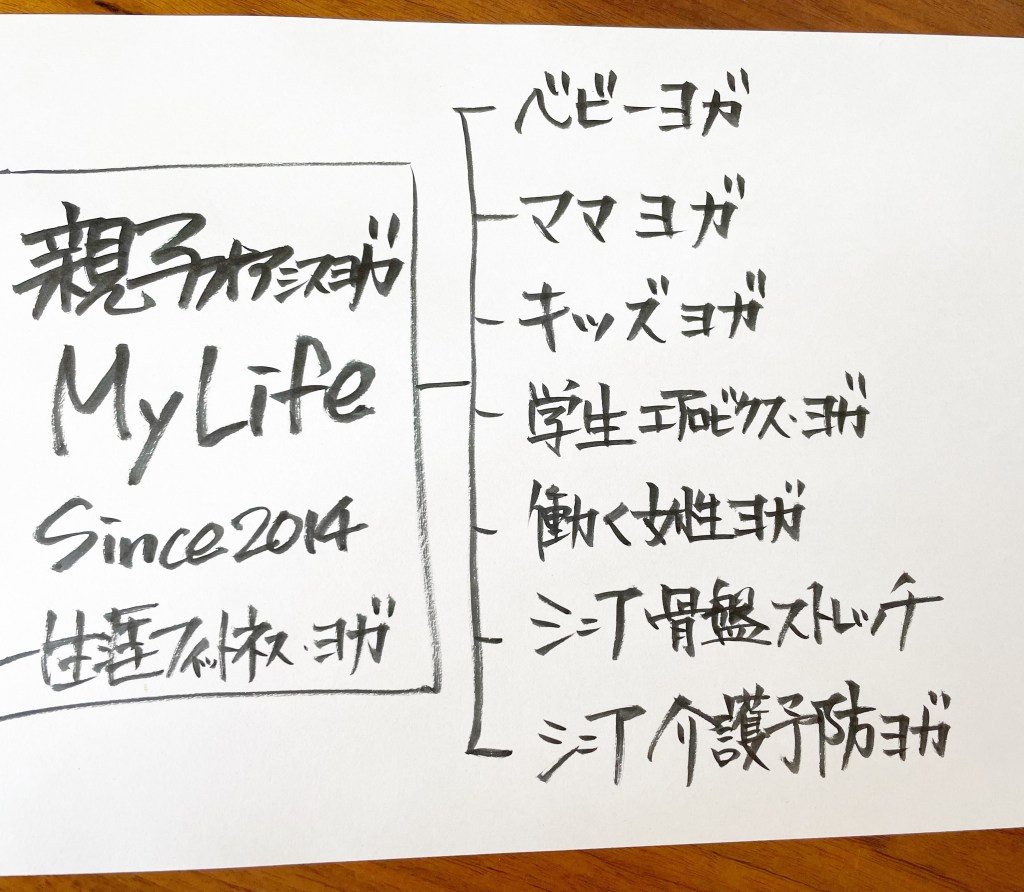 親子オアシスヨガ
MyLife
Since2014
生涯フィットネス・ヨガ
ベビーヨガ
ママヨガ
キッズヨガ
学生エアロビクス・ヨガ
働く女性ヨガ
シニア骨盤ストレッチ
シニア介護予防ヨガ